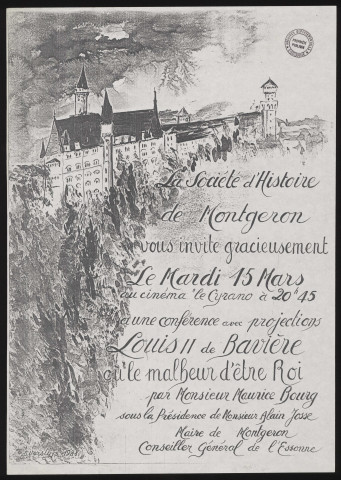 La Société d'Histoire
de Montgeron
vous invite gracieusement
Le Mardi 15 Mars
au cinéma "le Cyrano" à 20h45
à une conférence avec projections
Louis II de Bavière
ou le malheur d'être Roi
par Monsieur Maurice Bourg
sous la Présidence de Monsieur Alain Josse
Maire de Montgeron
Conseiller Général de l'Essonne